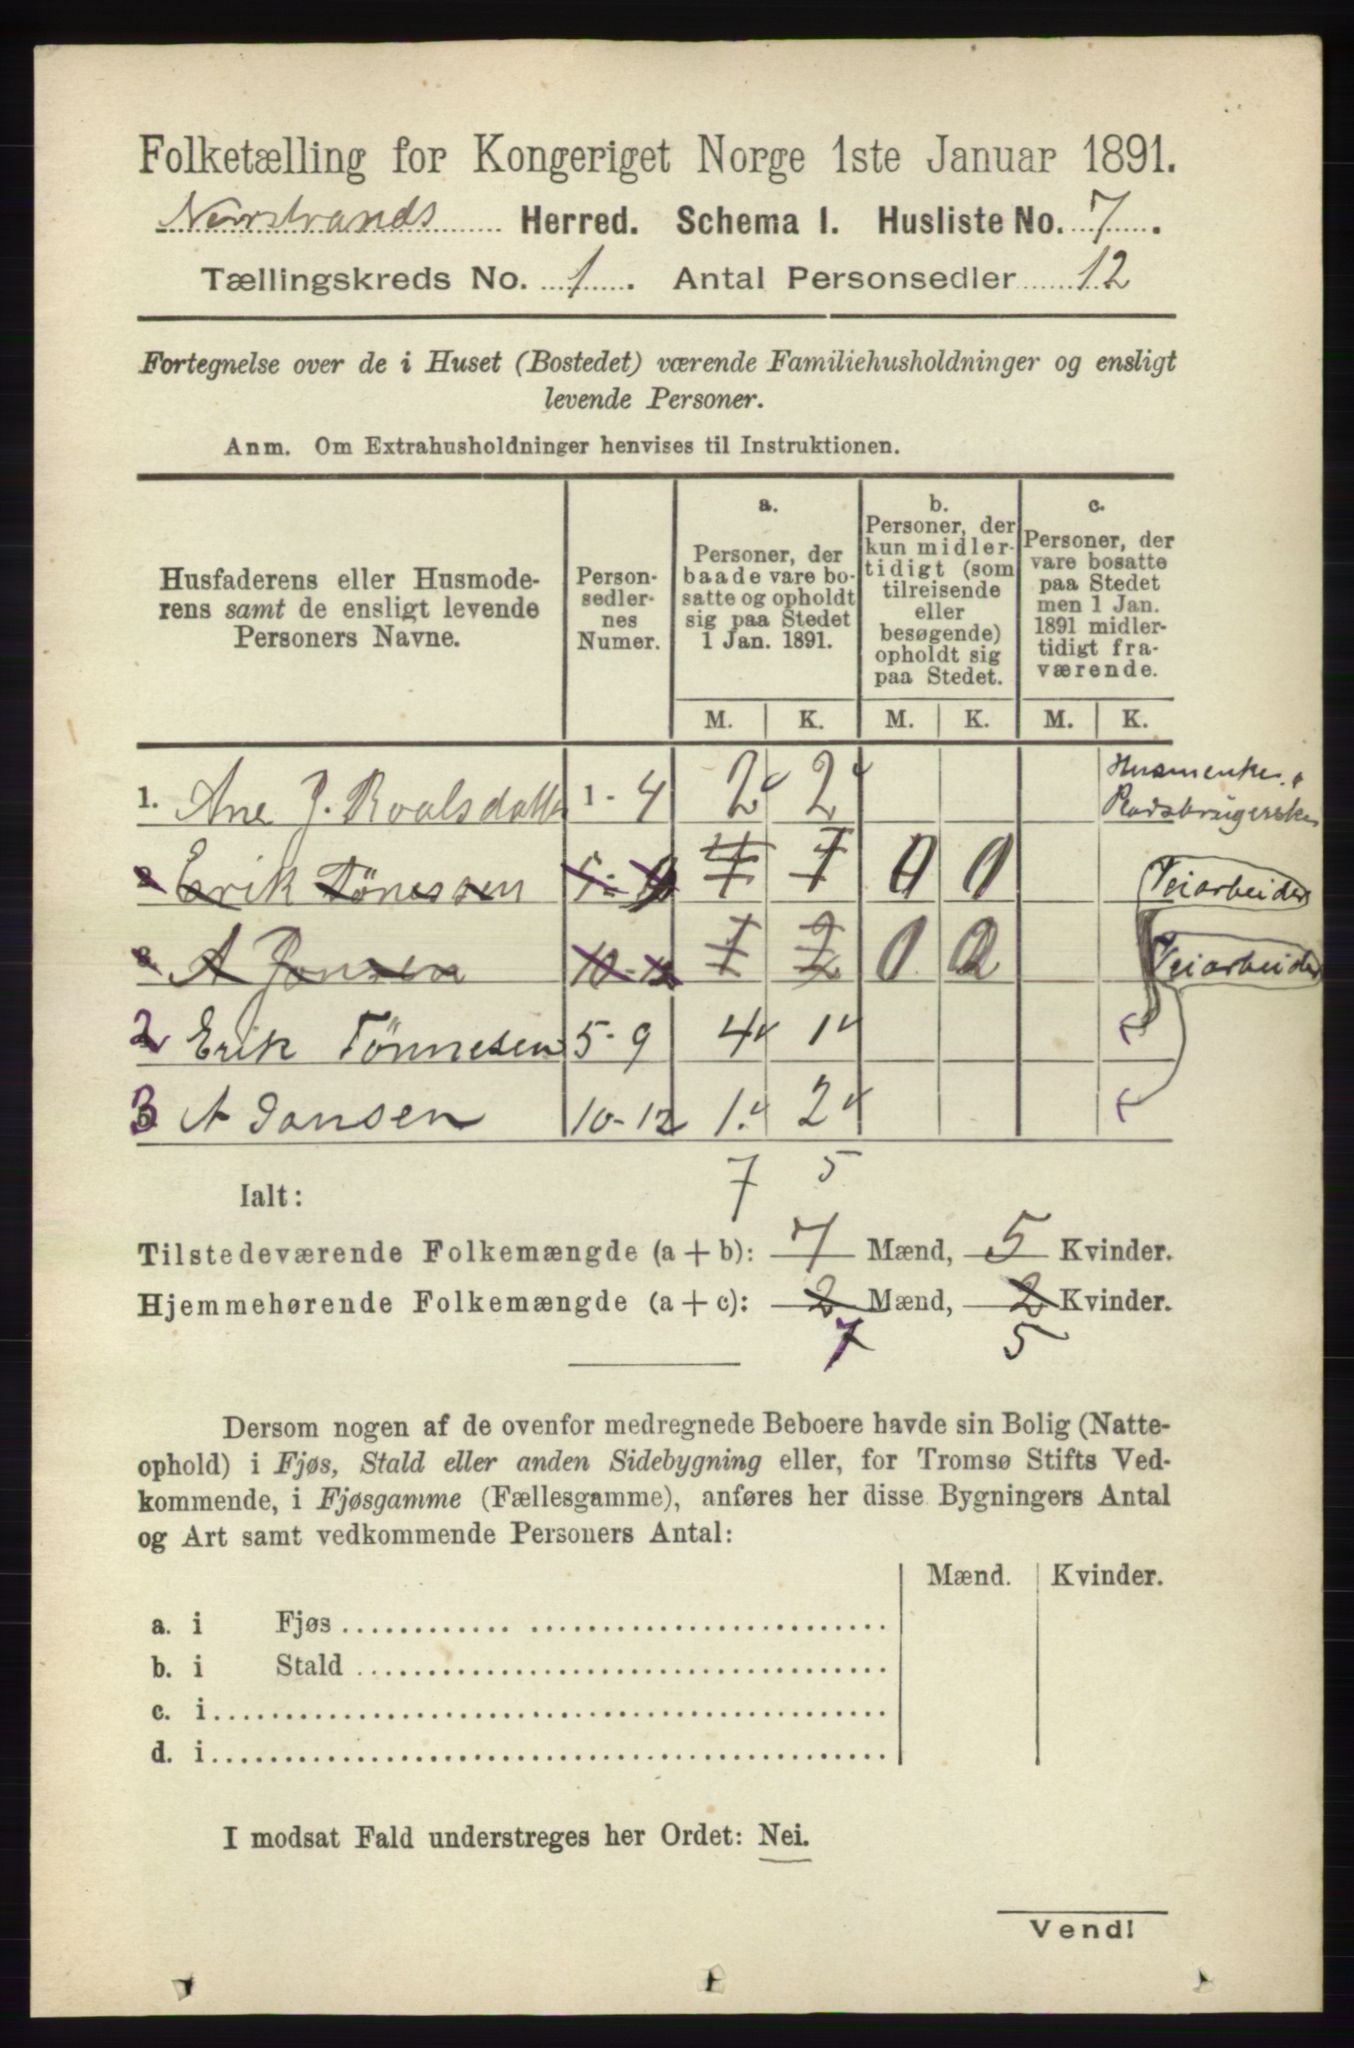 Folketælling for Kongeriget Norge 1ste Januar 1891.
Nærstrands Herred. Schema I. Husliste No. 7.
Tællingskreds No. 1. Antal Personsedler 12
Fortegnelse over de i Huset (Bostedet) værende Familiehusholdninger og ensligt
levende Personer.
Anm. Om Extrahusholdninger henvises til Instruktionen.
Husfaderens eller Husmode-
rens samt de ensligt levende
Personers Navne.
Person-
sedler-
nes
Numer.
a.
Personer, der
baade vare bo-
satte og opholdt
sig paa Stedet
1 Jan. 1891.
b.
Personer, der
kun midler-
tidigt (som
tilreisende
eller
besøgende)
opholdt sig
paa Stedet.
c.
Personer, der
vare bosatte
paa Stedet
men 1 Jan.
1891 midler-
tidigt fra-
værende.
M. K. M. K. M. K.
1. Ane J. Roalsdatter 1 - 4 2 2 Husmenke.
2 Erik Tönessen 5 - Veiarbeider
3 A Jonsen 10-12 1 2 Veiarbeider
2 Erik Tönnesen 5 - 9 4 1
3 A Jonsen 10-12 1 2
7 5
Ialt:
Tilstedeværende Folkemængde (a + b): 7 Mænd, 5 Kvinder.
Hjemmehørende Folkemængde (a + c): 2 Mænd, 2 Kvinder.
7 5
Dersom nogen af de ovenfor medregnede Beboere havde sin Bolig (Natte-
ophold) i Fjøs, Stald eller anden Sidebygning eller, for Tromsø Stifts Ved-
kommende, i Fjøsgamme (Fællesgamme), anføres her disse Bygningers Antal
og Art samt vedkommende Personers Antal:
Mænd. Kvinder.
a. i Fjøs
b. i Stald
c. i
d. i
I modsat Fald understreges her Ordet: Nei.
Vend!